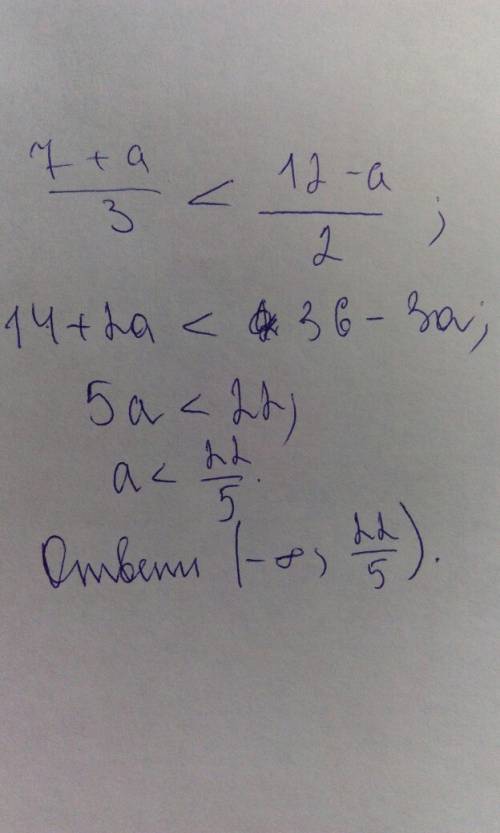 (7 + a)/3 < (12 - a)/2 ;
14 + 2a < 36 - 3a;
5a < 22;
a < 22/5.
Ответ (-∞; 22/5).